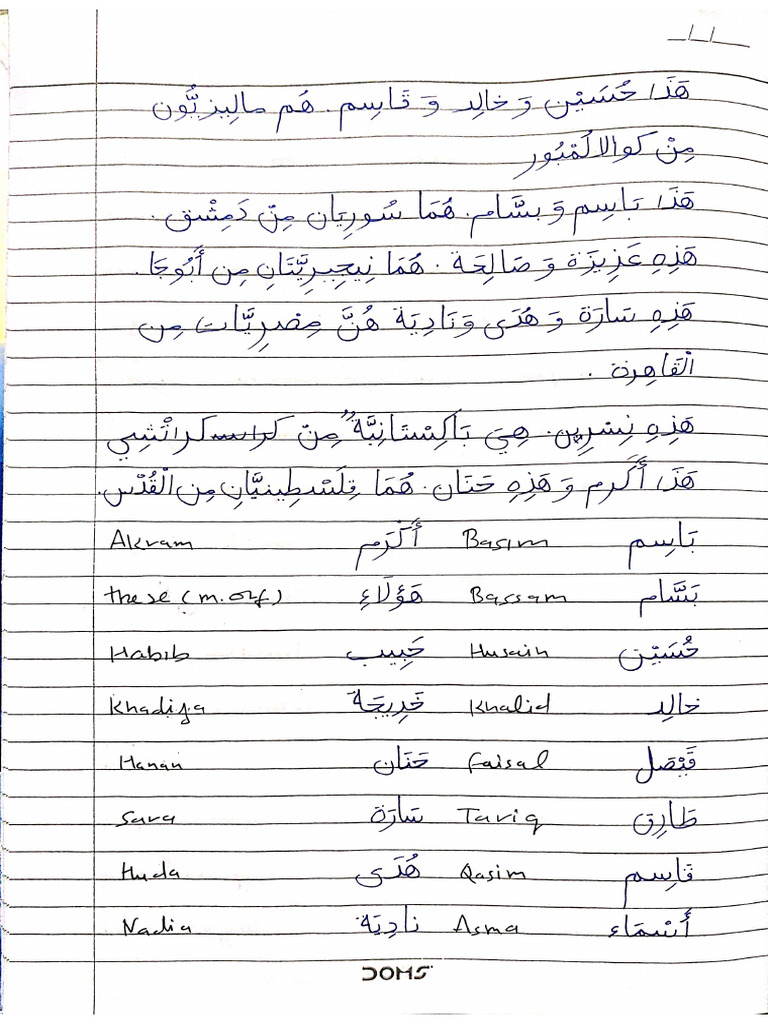 هَذَا حُسَيْن وَ خالِد وَ قَاسِم. هُم مالِيزِيُّون
مِنْ كوالالُمْبُور
هَذَا بَاسِم وَ بسَّام. هُمَا سُورِيَان مِنْ دَمِشْق.
هَذِهِ عَزِيزَة وَ صَالِحَة. هُمَا نِيجِيرِيَّتَانِ مِن أَبُوجَا.
هَذِهِ سَارَة وَ هُدَى وَ نَادِيَة هُنَّ مِصْرِيَّات مِن
الْقَاهِرة.
هَذِهِ نِسْرِين. هِيَ بَاكِسْتَانِيَّةٌ مِنْ كراتْشِي
هَذَا أَكْرَم وَ هَذِهِ حَنَان. هُمَا فِلَسْطِينيَّانِ مِن الْقُدْس.
بَاسِم Basim أَكْرَم Akram
بَسَّام Bassam هَؤُلَاءِ these (m. or f)
حُسَيْن Husain حَبِيب Habib
خالِد Khalid خَدِيجَة Khadija
فَيْصَل Faisal حَنَان Hanan
طَارِق Tariq سَارَة Sara
قَاسِم Qasim هُدَى Huda
أَسْمَاء Asma نادِيَة Nadia
DOMS